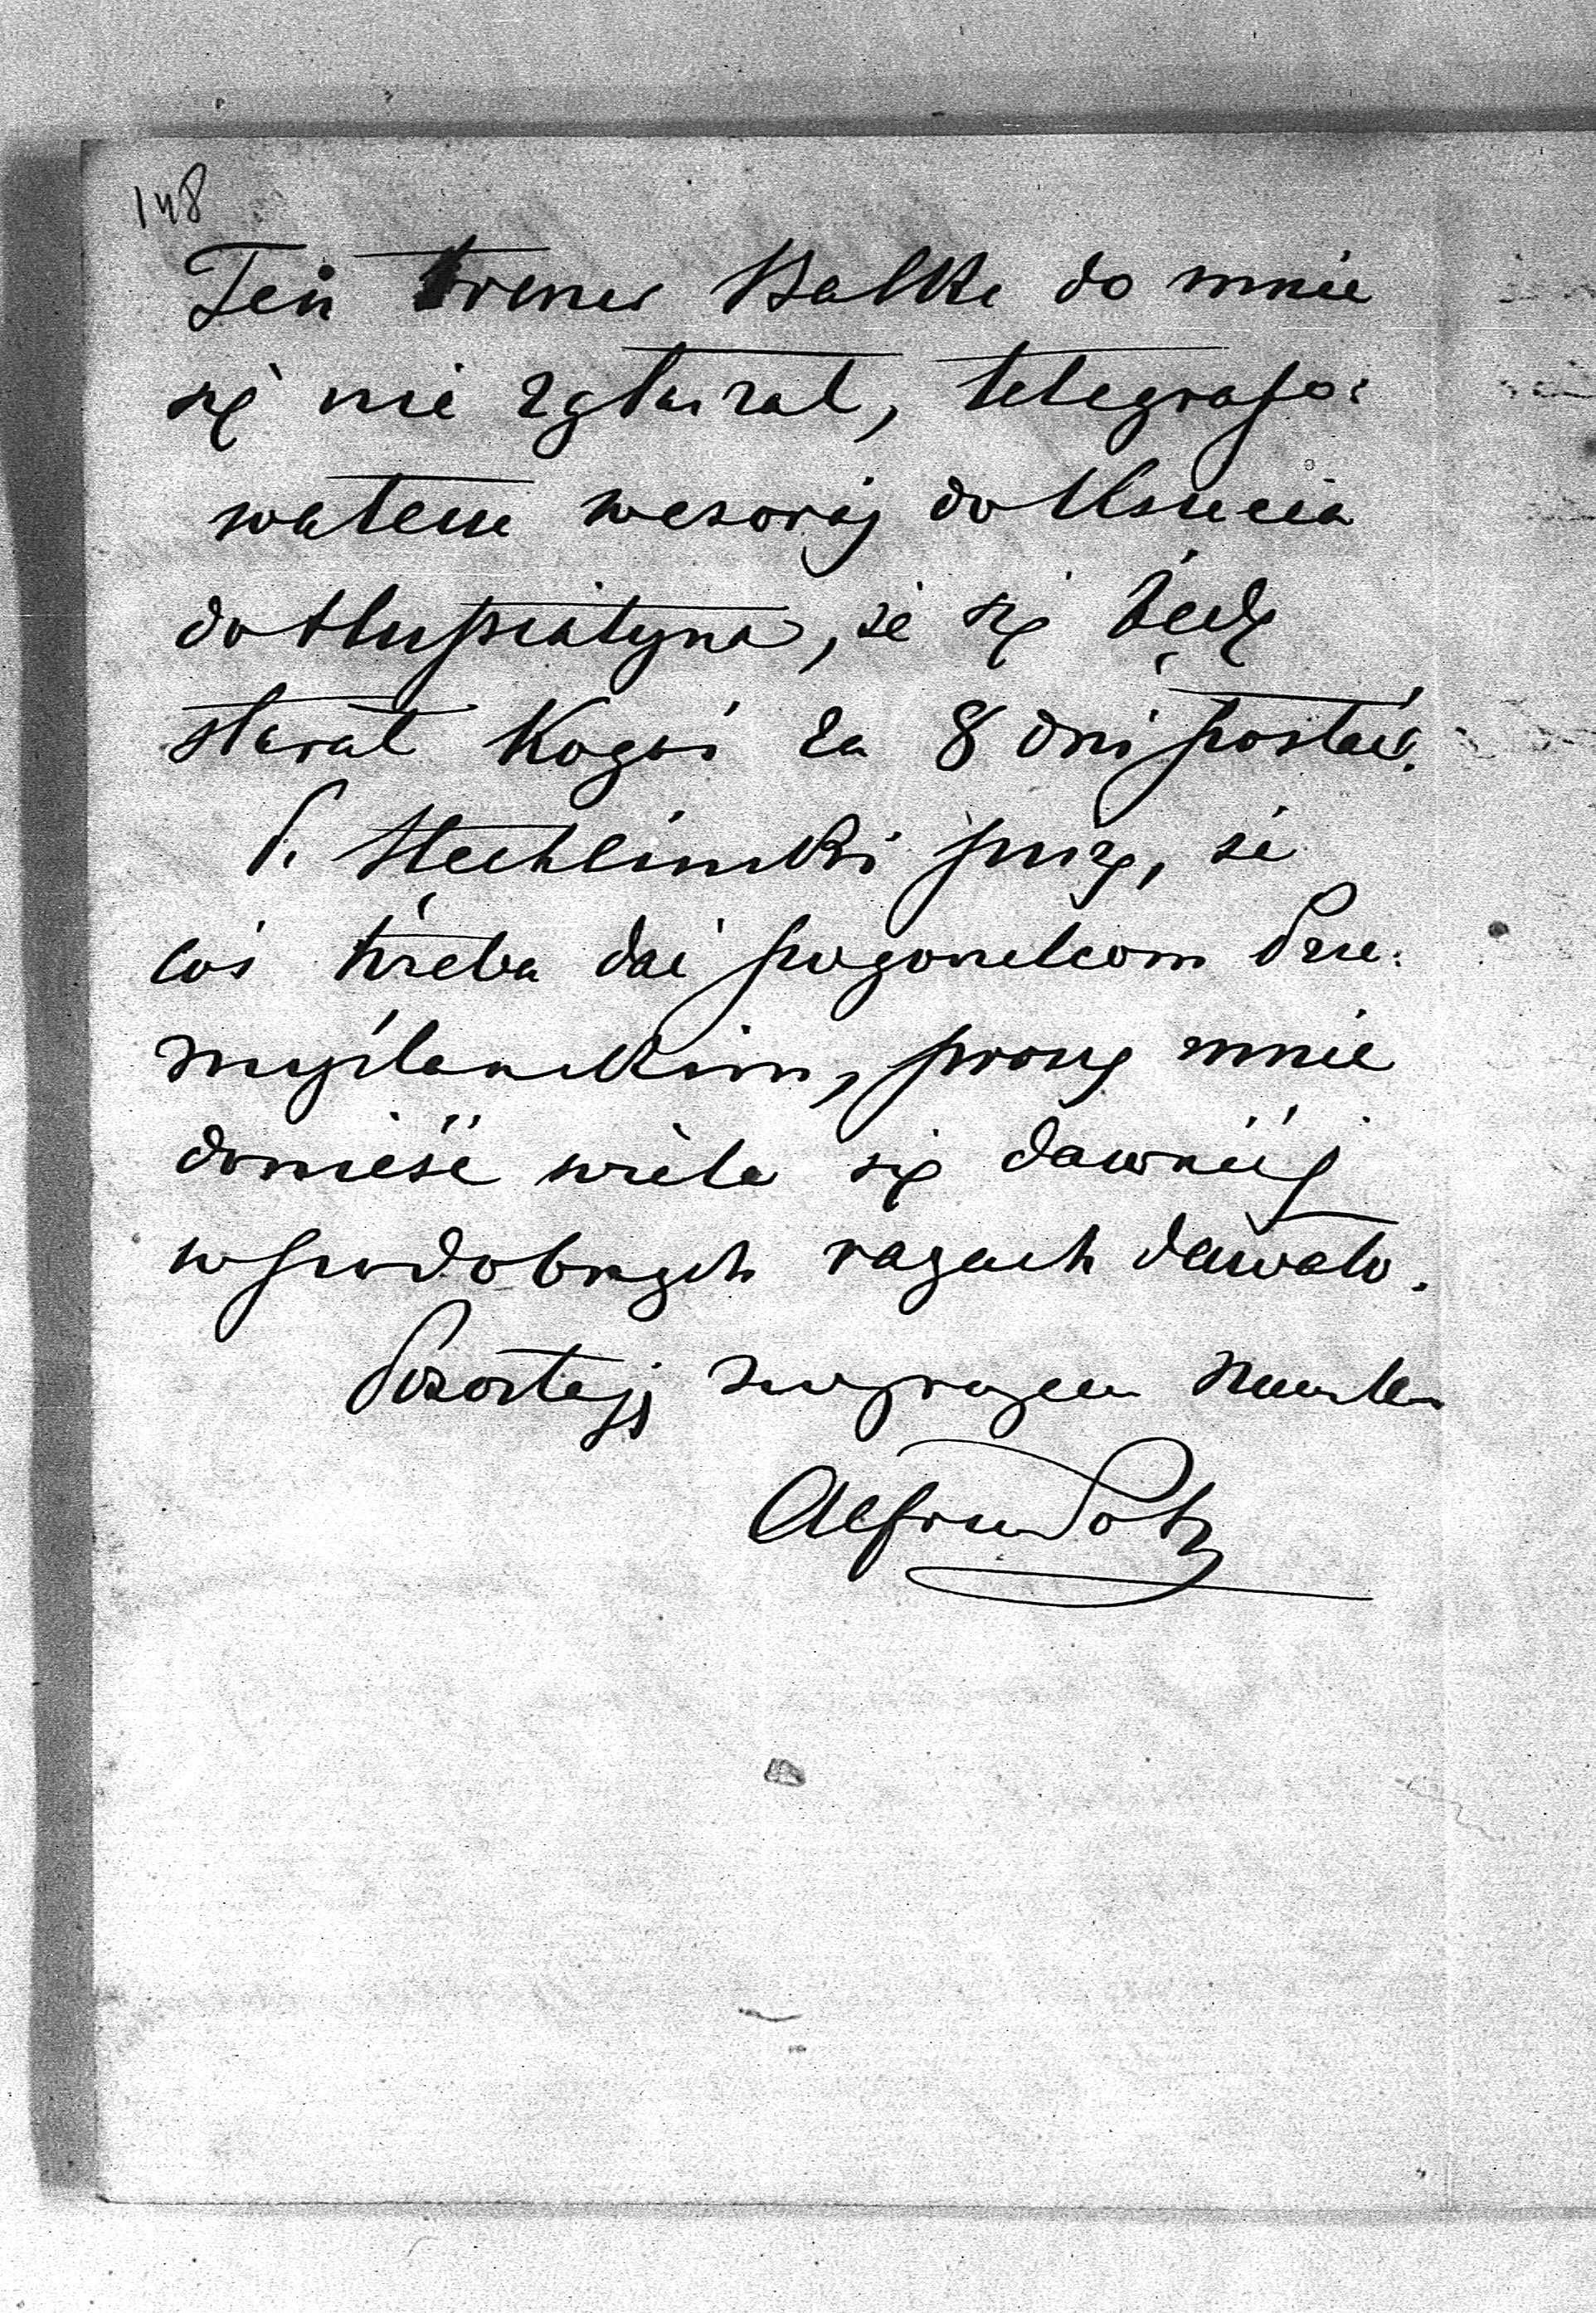 148
Ten trener Balke do mnie
się nie zgłaszał, telegrafo:
wałem wczoraj do Księcia
do Hupiatyna, że się będę
starał kogoś za 8 dni posłać.
P. Stechliński pisze, że
coś trzeba dać pogorzelcom Prze:
myślańskim, proszę mnie
donieść wiele się dawniéj
w podobnych razach dawało.
Pozostaję
Alfred Pot